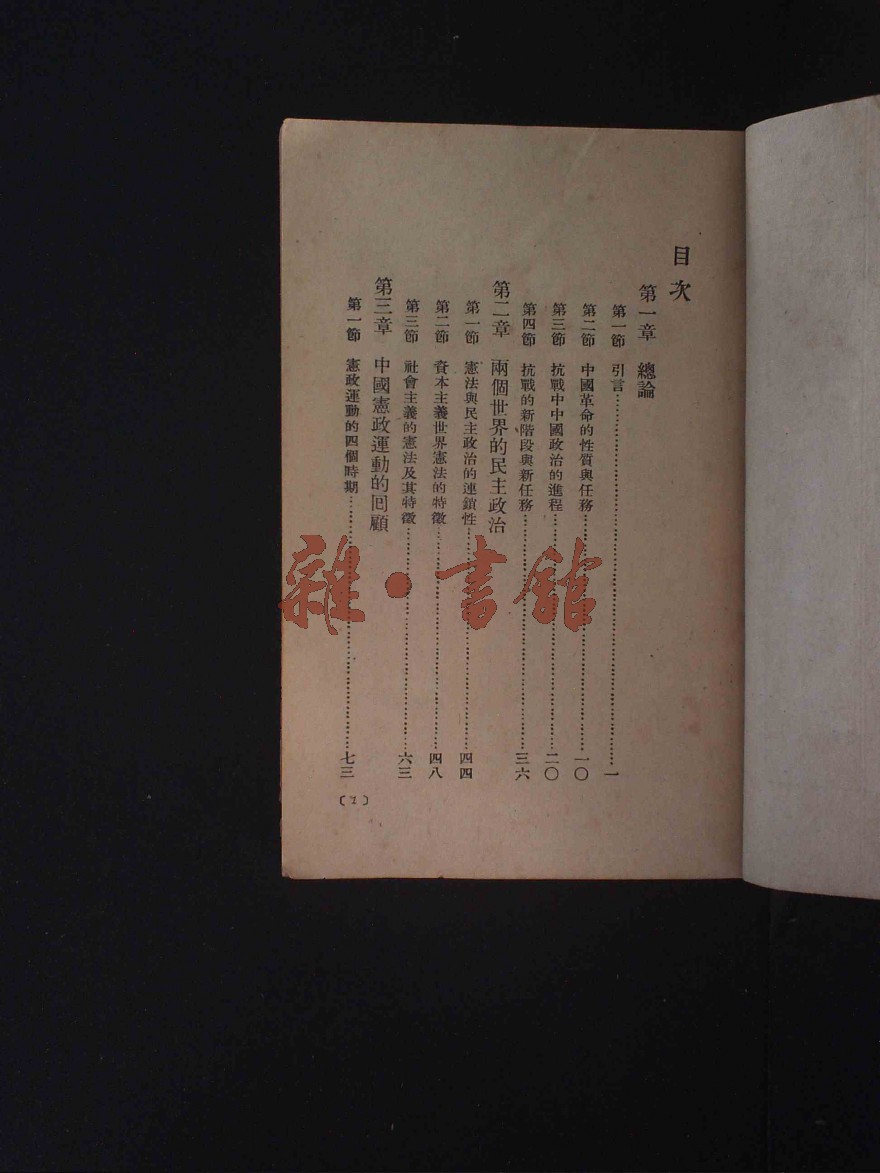 目次
第一章 總論
第一節 引言…………一
第二節 中國革命的性質與任務…………一〇
第三節 抗戰中中國政治的進程…………二〇
第四節 抗戰的新階段與新任務…………三六
第二章 兩個世界的民主政治
第一節 憲法與民主政治的連鎖性…………四四
第二節 資本主義世界憲法的特徵…………四八
第三節 社會主義的憲法及其特徵…………六三
第三章 中國憲政運動的回顧
第一節 憲政運動的四個時期…………七三
〔1〕
雜·書館